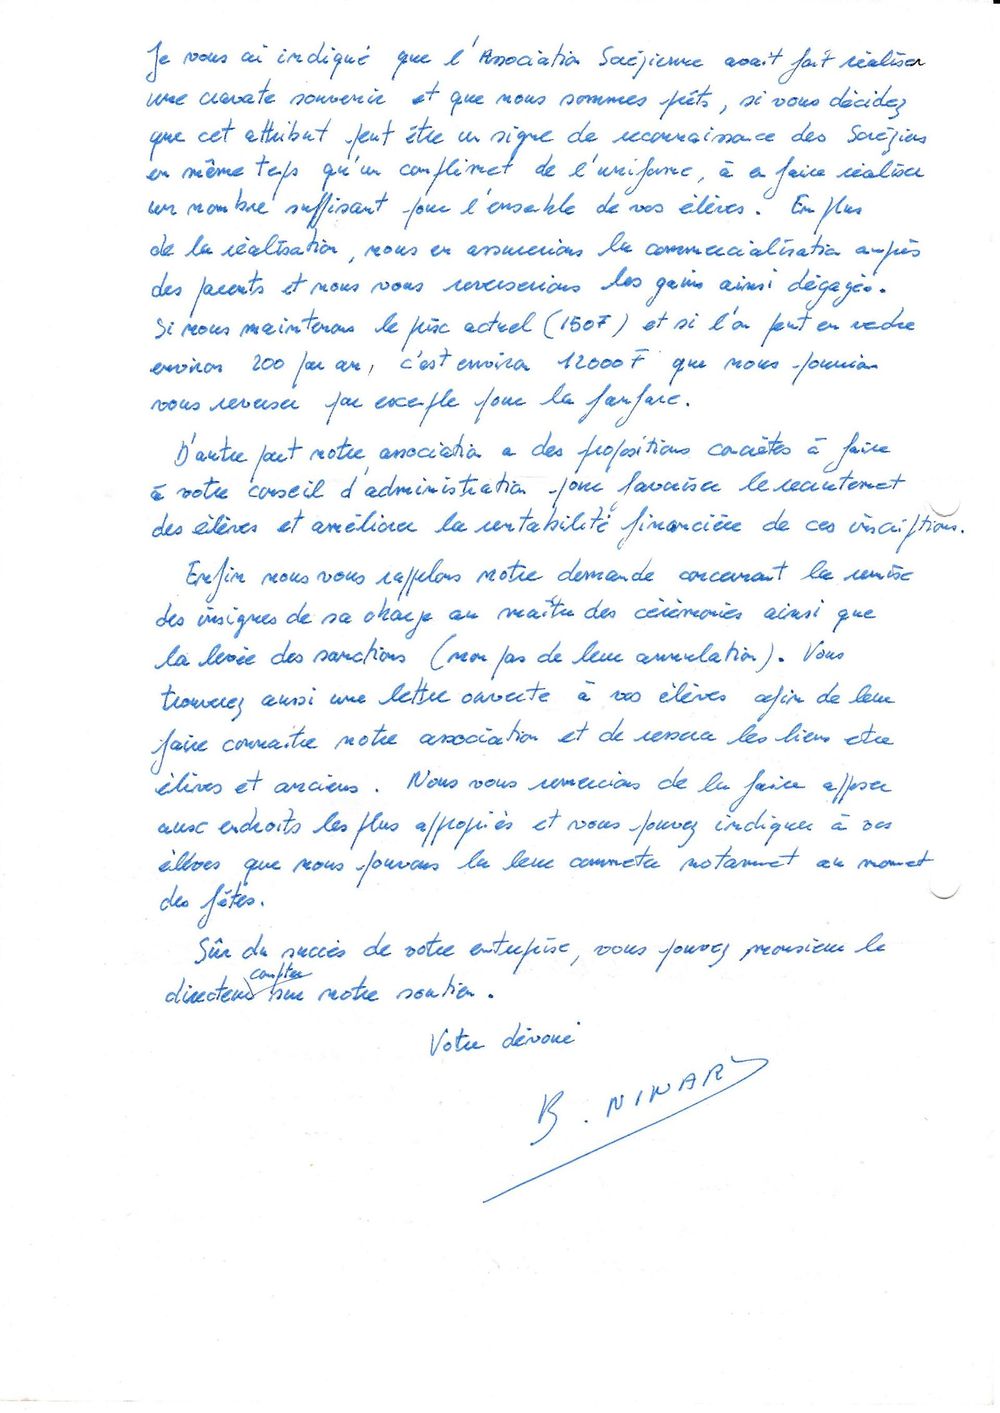 Je vous ai indiqué que l'Association Sorézienne avait fait réaliser
une cravate souvenir et que nous sommes prêts, si vous décidez
que cet attribut peut être un signe de reconnaissance des Soréziens
en même temps qu'un complément de l'uniforme, à en faire réaliser
un nombre suffisant pour l'ensemble de vos élèves. En plus
de la réalisation, nous en assurerions la commercialisation auprès
des parents et nous vous reverserions les gains ainsi dégagés.
Si nous maintenons le prix actuel (150F) et si l'on peut en vendre
environ 200 par an, c'est environ 12000 F que nous pourrions
vous reverser par exemple pour la fanfare.
D'autre part notre association a des propositions concrètes à faire
à votre conseil d'administration pour favoriser le recrutement
des élèves et améliorer la rentabilité financière de ces inscriptions.
Enfin nous vous rappelons notre demande concernant la remise
des insignes de sa charge au maître des cérémonies ainsi que
la levée des sanctions (non pas de leur annulation). Vous
trouverez aussi une lettre ouverte à vos élèves afin de leur
faire connaître notre association et de resserrer les liens entre
élèves et anciens. Nous vous remercions de la faire apposer
aux endroits les plus appropriés et vous pouvez indiquer à vos
élèves que nous pouvons la leur commenter notamment au moment
des fêtes.
Sûr du succès de votre entreprise, vous pouvez monsieur le
directeur compter sur notre soutien.
Votre dévoué
B. NINARD